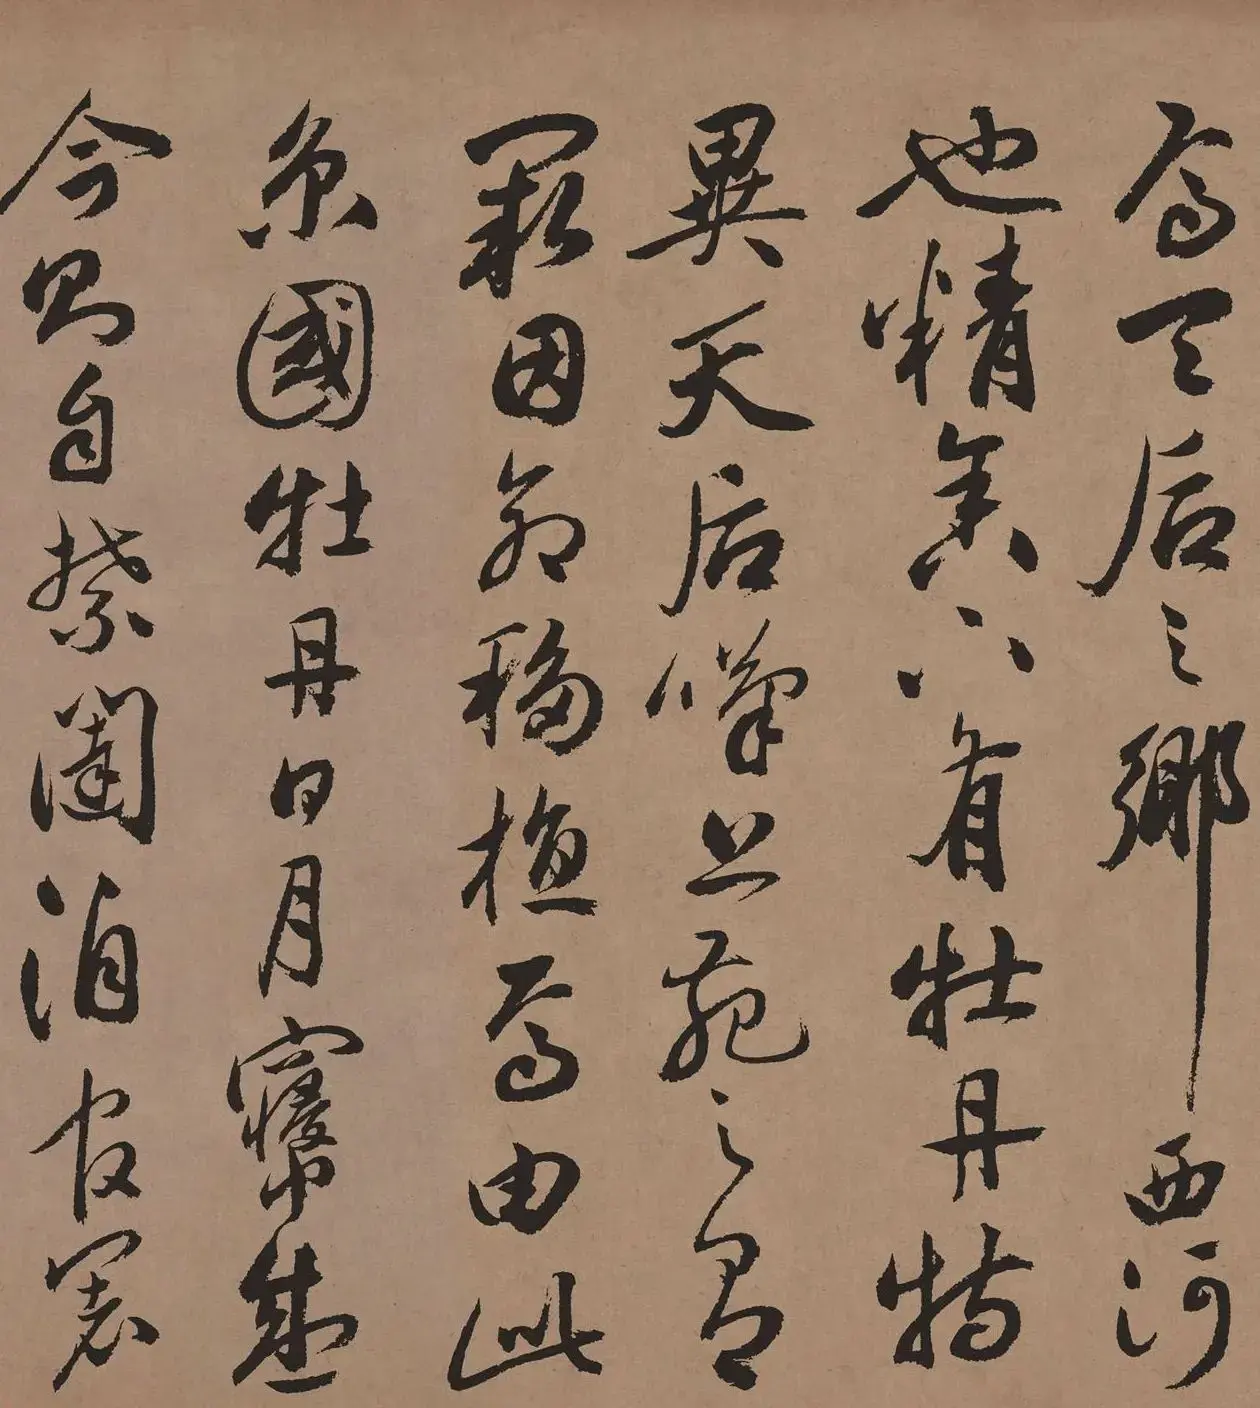 焉天后之鄉西河
也精舍下有牡丹特
異天后嘆上苑之有
闕因命移植焉由此
京國牡丹日月寖盛
今則自禁闥洎官署